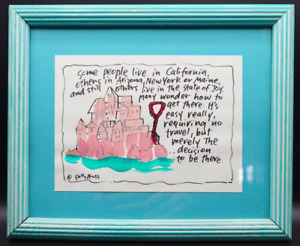 Some people live in California,
others in Arizona, New York or Maine,
and still others live in the state of Joy.
Many wonder how to
get there. It's
easy really,
requiring no
travel, but
merely The
... decision
to be there
© Sally Huss